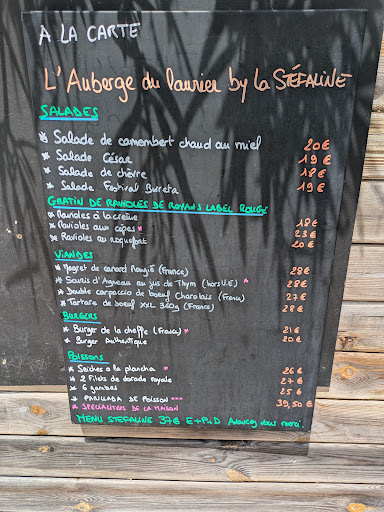 A LA CARTE
L'Auberge du laurier by la STÉFALINE
SALADES
* Salade de camembert chaud au miel 20€
* Salade César 19€
* Salade de chèvre 18€
* Salade Festival Bureta 19€
GRATIN DE RAVIOLES DE ROYANS LABEL ROUGE
* Ravioles à la crème 18€
* Ravioles aux cèpes * 23€
* Ravioles au roquefort 20€
VIANDES
* Magret de canard Rougié (France) 28€
* Souris d'Agneau au jus de Thym (hors U.E) * 28€
* Double carpaccio de boeuf Charolais (France) 27€
* Tartare de boeuf XXL 360g (France) 28€
BURGERS
* Burger de la cheffe (France) * 21€
* Burger Authentique 20€
Poissons
* Seiches a la plancha * 26€
* 2 Filets de dorade royale 27€
* 6 gambas 25€
* PARILLADA DE POISSON *** 39,50€
* SPECIALITÉES DE LA MAISON
MENU STEFALINE 37€ E+P+D